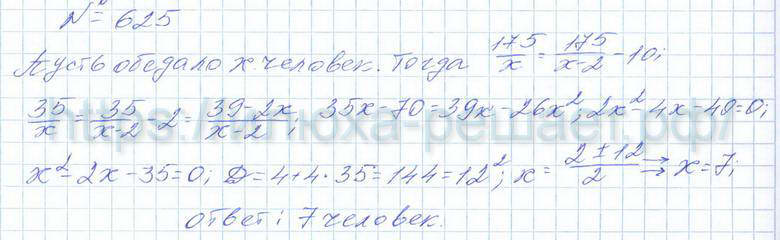 № 625
Пусть обедало x человек. Тогда 175/x = 175/(x-2) - 10;
35/x = 35/(x-2) - 2 = (39-2x)/(x-2); 35x-70=39x-26x²; 2x²-4x-40=0;
x²-2x-35=0; D=4+4·35=144=12²; x= (2±12)/2 →→ x=7;
ответ: 7 человек.
https://илюха-решает.рф/